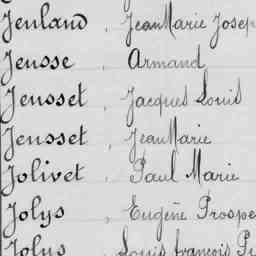 Jenland, Jean Marie Josep
Jeusse, Armand
Jeusset, Jacques Louis
Jeusset, Jean Marie
Jolivet, Paul Marie
Jolys, Eugène Prospe
Jolys, Louis françois Pi